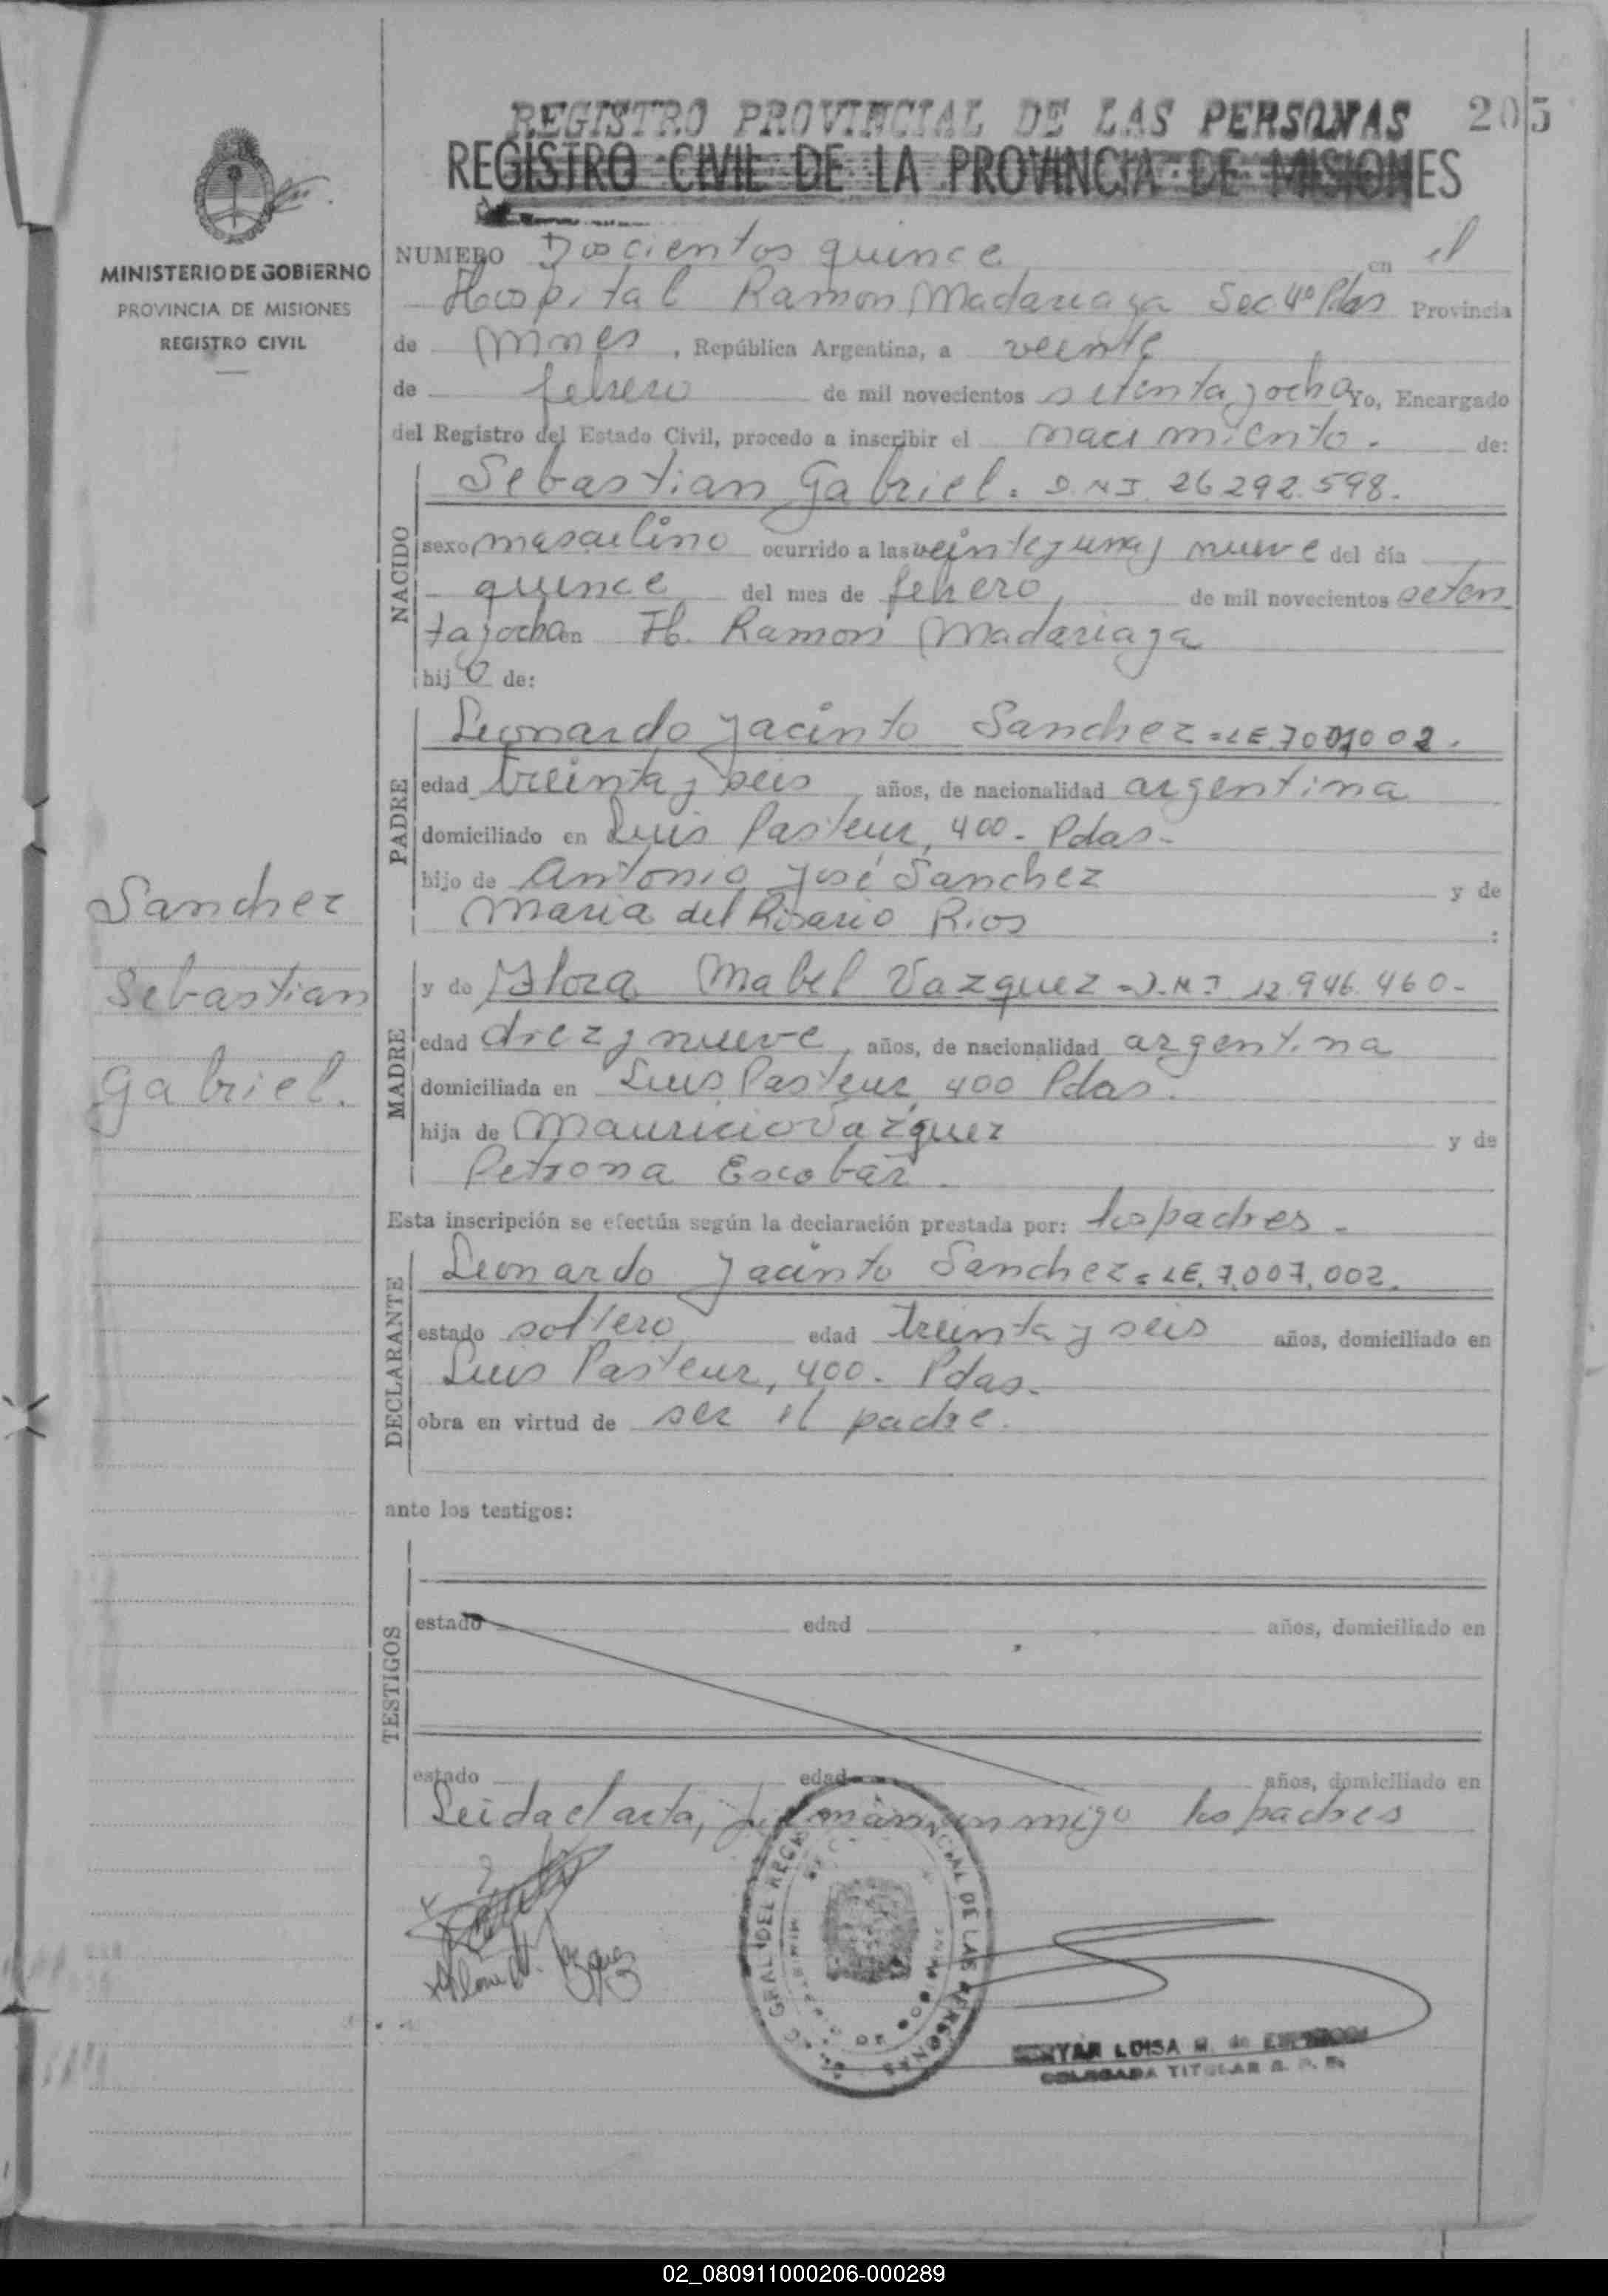 REGISTRO PROVINCIAL DE LAS PERSONAS 205
REGISTRO CIVIL DE LA PROVINCIA DE MISIONES
MINISTERIO DE GOBIERNO
PROVINCIA DE MISIONES
REGISTRO CIVIL
NUMERO Doscientos quince en el
Hospital Ramon Madariaga Sec 4º Pdas Provincia
de Mnes, República Argentina, a veinte
de febrero de mil novecientos setenta y ocho Yo, Encargado
del Registro del Estado Civil, procedo a inscribir el nacimiento. de:
NACIDO
Sebastian Gabriel. D.N.I. 26.292.598.
sexo masculino ocurrido a las veinte y una y nueve del día
quince del mes de febrero, de mil novecientos seten
ta y ocho en H. Ramon Madariaga
hijo de:
PADRE
Leonardo Jacinto Sanchez = LE. 7007002.
edad treinta y seis, años, de nacionalidad argentina
domiciliado en Luis Pasteur, 400 - Pdas -
hijo de Antonio José Sanchez y de
Maria del Rosario Rios :
Sanchez
Sebastian
Gabriel.
MADRE
y de Flora Mabel Vazquez = D.N.I 12.946.460 -
edad diez y nueve, años, de nacionalidad argentina
domiciliada en Luis Pasteur, 400 Pdas.
hija de Mauricio Vazquez y de
Petrona Escobar.
Esta inscripción se efectúa según la declaración prestada por: los padres -
DECLARANTE
Leonardo Jacinto Sanchez = LE. 7,007,002.
estado soltero edad treinta y seis años, domiciliado en
Luis Pasteur, 400 - Pdas -
obra en virtud de ser el padre.
ante los testigos:
TESTIGOS
estado edad años, domiciliado en
estado edad años, domiciliado en
Leida el acta, firman conmigo los padres
LUISA M. de
TITULAR R. P. P.
02_080911000206-000289